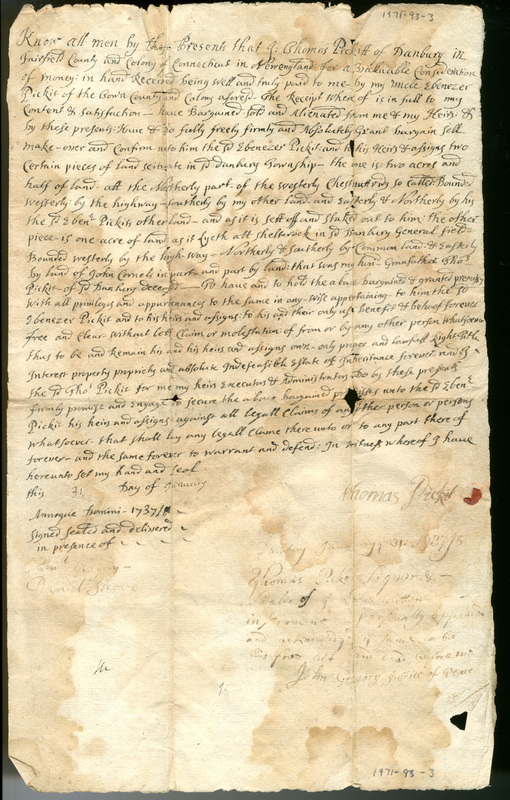 1971-93-3
Know all men by these Presents that I: Thomas Pickitt of Danbury in
Fairfield County and Colony of Connecticut in Newengland: for a Valluable Consideration
of money: in hand Received being well and truly paid to me by my Uncle Ebenezer
Pickit of the Town County and Colony afores'd: the Receipt where of is in full to my
Content & satisfaction — have Bargained sold and Alienated from me & my Heirs: &
by these presents: Have & do fully freely firmly and Absolutely Grant Bargain sell
make-over and Confirm unto him the s'd Ebenezer Pickit and to his Heirs & assigns two
Certain pieces of Land scituate in s'd Danbury Township — the one is two acres and
half of land: att the Northerly part of the westerly Chestnut so Called Bounded
westerly: by the highway — southerly by my other Land: and Easterly & Northerly by his
the s'd Eben'r Pickits other land — and as it is sett off and staked out to him: the other
piece is one acre of land as it Lyeth att in s'd Danbury General field
Bounded westerly by the high-way — Northerly & southerly by Common land: & Easterly
by land of John Cornels in part and part by land: that was my Hon'r: Granfather Tho's
Pickit of s'd Danbury deceas'd — To have and to hold the above bargained & granted premises
with all priviledges and appurtenances to the same in any wise appertaining to him the s'd
Ebenezer Pickit and to his heirs and assigns to his and their only use benefit & behoof forever
free and Clear without Lett Claim or molestation of from or by any other person whatsoever
thus to be and Remain his and his heirs and assigns own only proper and lawfull Right Title
Interest property propriety and absolute Indefeasible Estate of Inheritance forever
the s'd Tho's Pickit for me my heirs Executors & Administrators do by these presents
firmly promise and Engage to secure the above bargained premises unto the s'd Eben'r
Pickit his heirs and assigns against all Legall Claims of any other person or persons
whatsoever that shall lay any Legall Claime there unto or to any part there of
forever — and the same forever to warrant and defend: In witness whereof I have
hereunto set my hand and seal
this 31 Day of January
Annoque Domini — 1737/8
Signed sealed and delivered
in presence of
Thomas Pickit
Danbury 31 1737/8
Thomas Pickit Signer &
Sealer of
instrument Personally appeared
and acknowledged y same to be
his before me
John Gregory Justice of Peace
1971-93-3